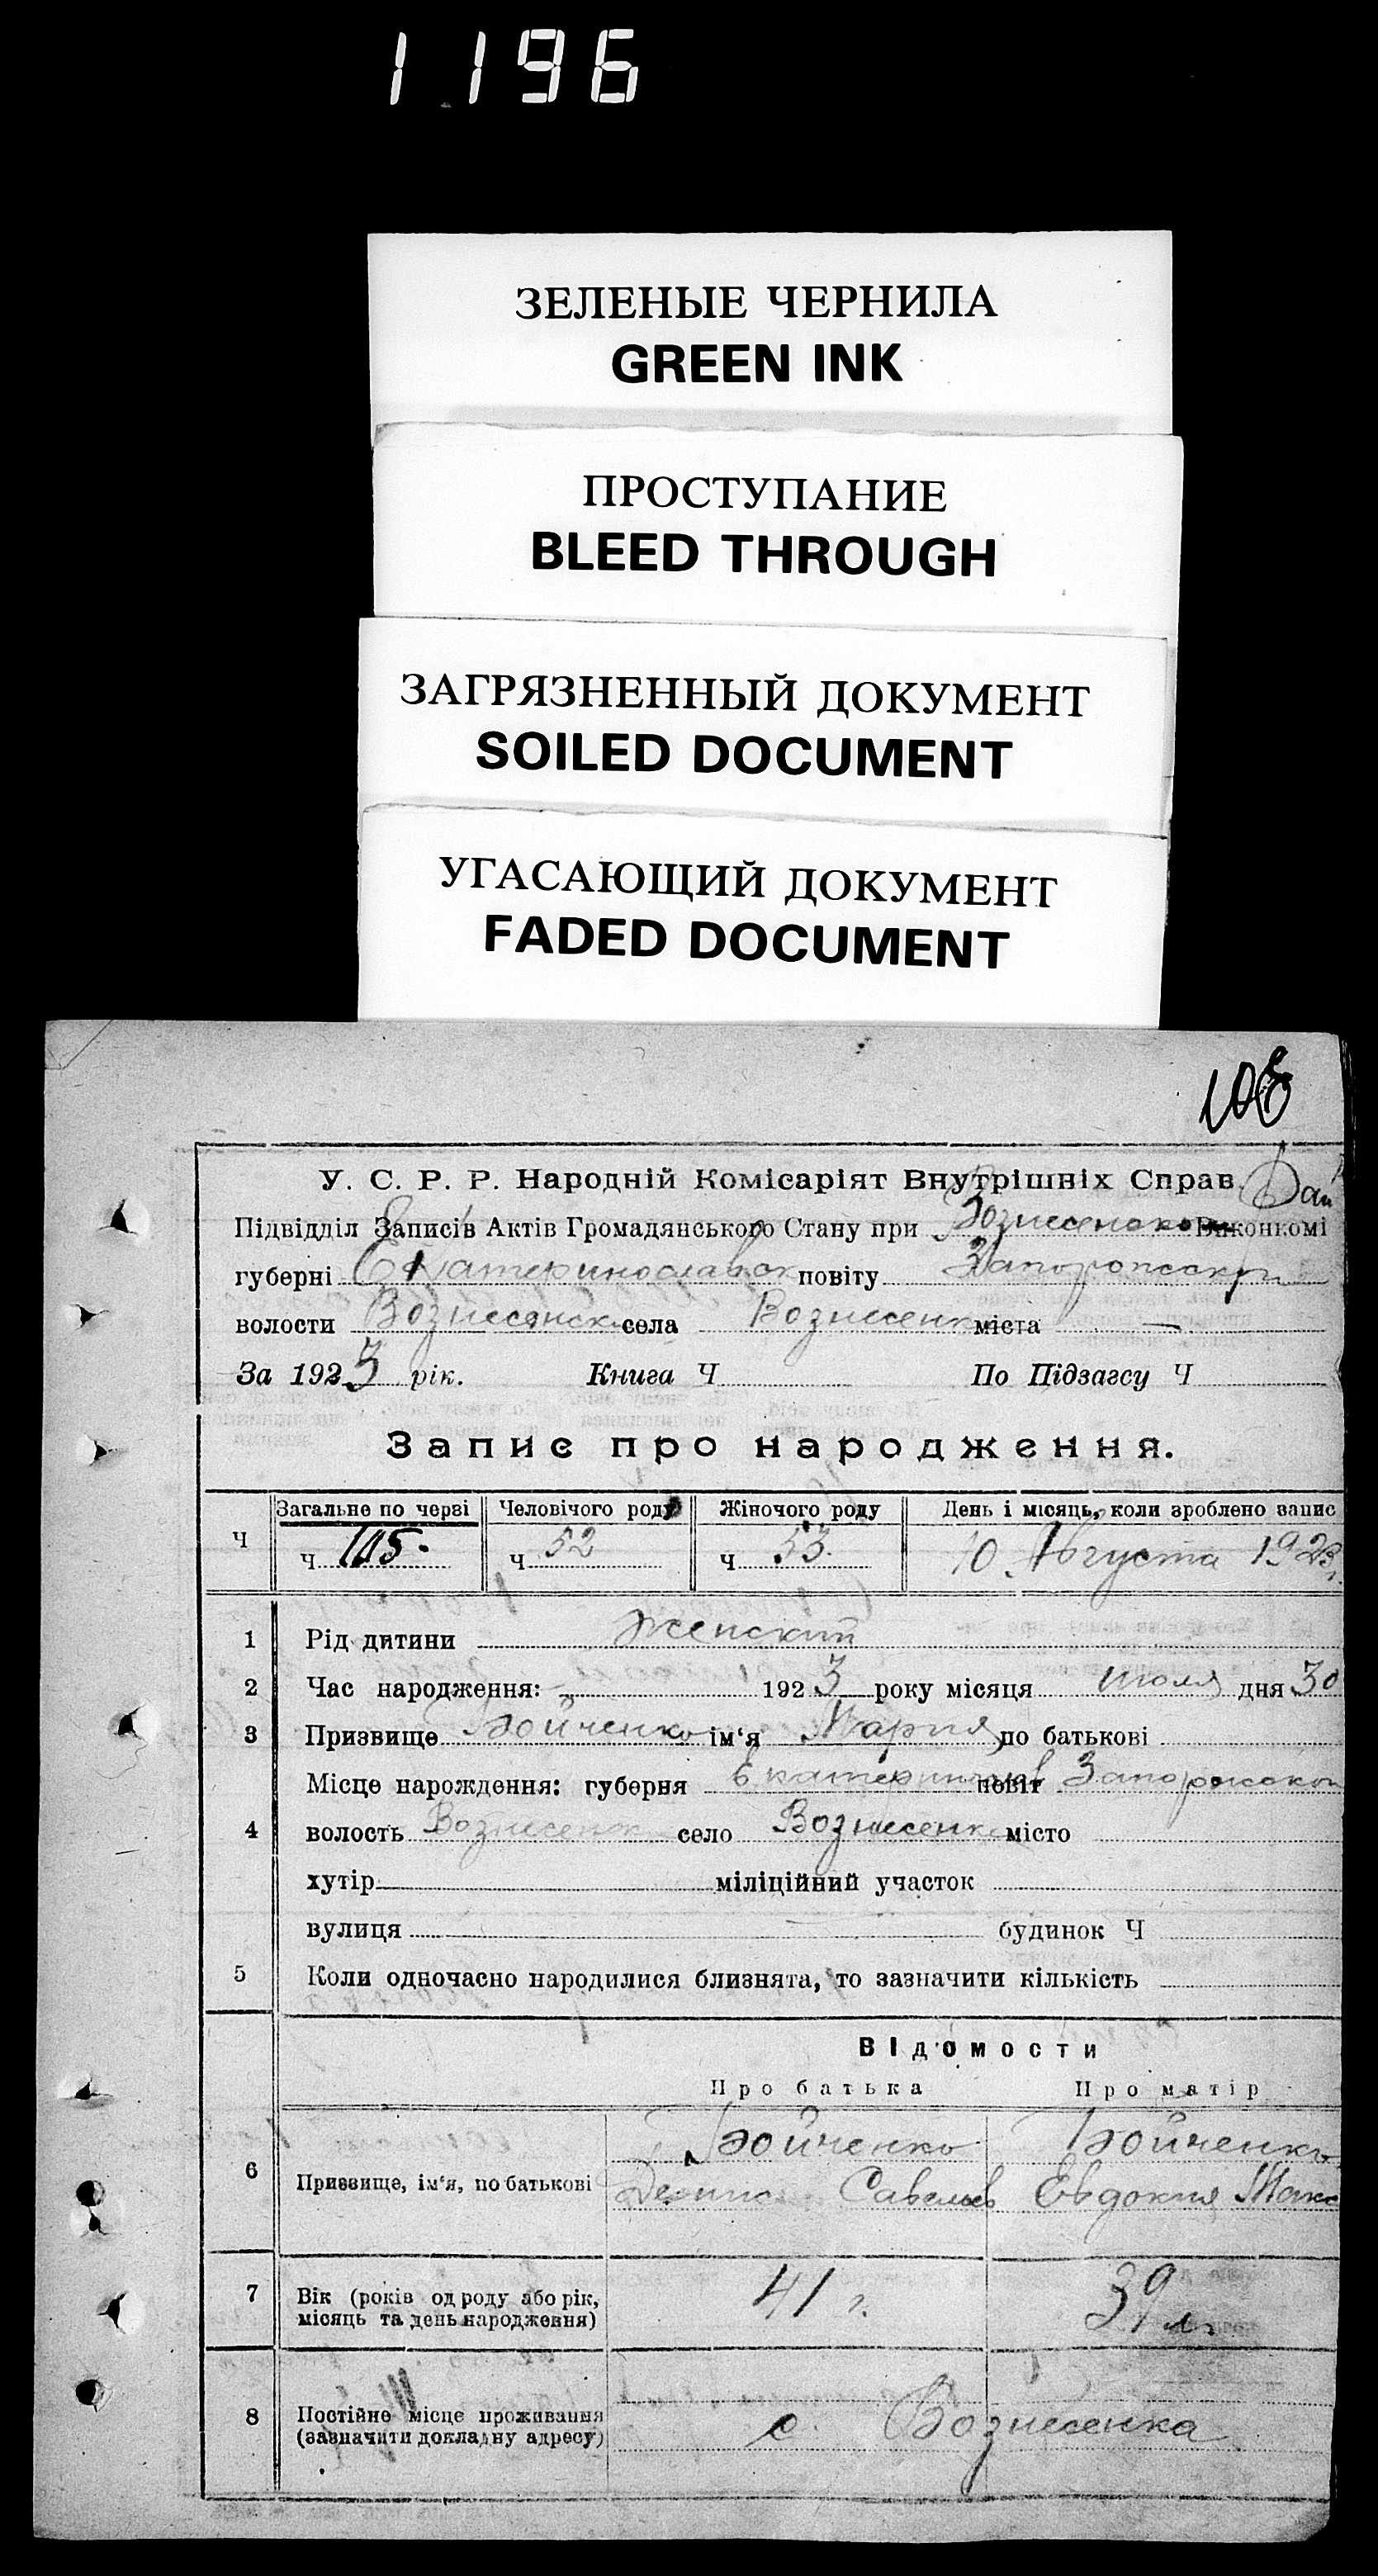 1196
ЗЕЛЕНЫЕ ЧЕРНИЛА
GREEN INK
ПРОСТУПАНИЕ
BLEED THROUGH
ЗАГРЯЗНЕННЫЙ ДОКУМЕНТ
SOILED DOCUMENT
УГАСАЮЩИЙ ДОКУМЕНТ
FADED DOCUMENT
У. С. Р. Р. Народній Комісаріят Внутрішніх Справ.
Підвідділ Записів Актів Громадянського Стану при Вознесенском Виконкомі
губерні Екатеринославск повіту
волости Вознесенск села Вознесенк міста —
За 1923 рік. Книга Ч По Підзагсу Ч
Запис про народження.
Загальне по черзі Человічого роду Жіночого роду День і місяць, коли зроблено запис
Ч Ч 105. Ч 52 Ч 53. 10 Августа 1923 г.
1 Рід дитини женский
2 Час народження: 1923 року місяця июля дня 30
3 Призвище Бойченко ім'я Мария по батькові
Місце нарождення: губерня Екатеринослав повіт Запорожской
4 волость Вознесенск село Вознесенк місто
хутір міліційний участок
вулиця будинок Ч
5 Коли одночасно народилися близнята, то зазначити кількість
Відомости
Про батька Про матір
Бойченко Бойченко
6 Призвище, ім'я, по батькові Денис Савельев Евдокия Макс
7 Вік (років од роду або рік, місяць та день народження) 41 г. 39 л.
8 Постійне місце проживання (зазначити докладну адресу) с. Вознесенка